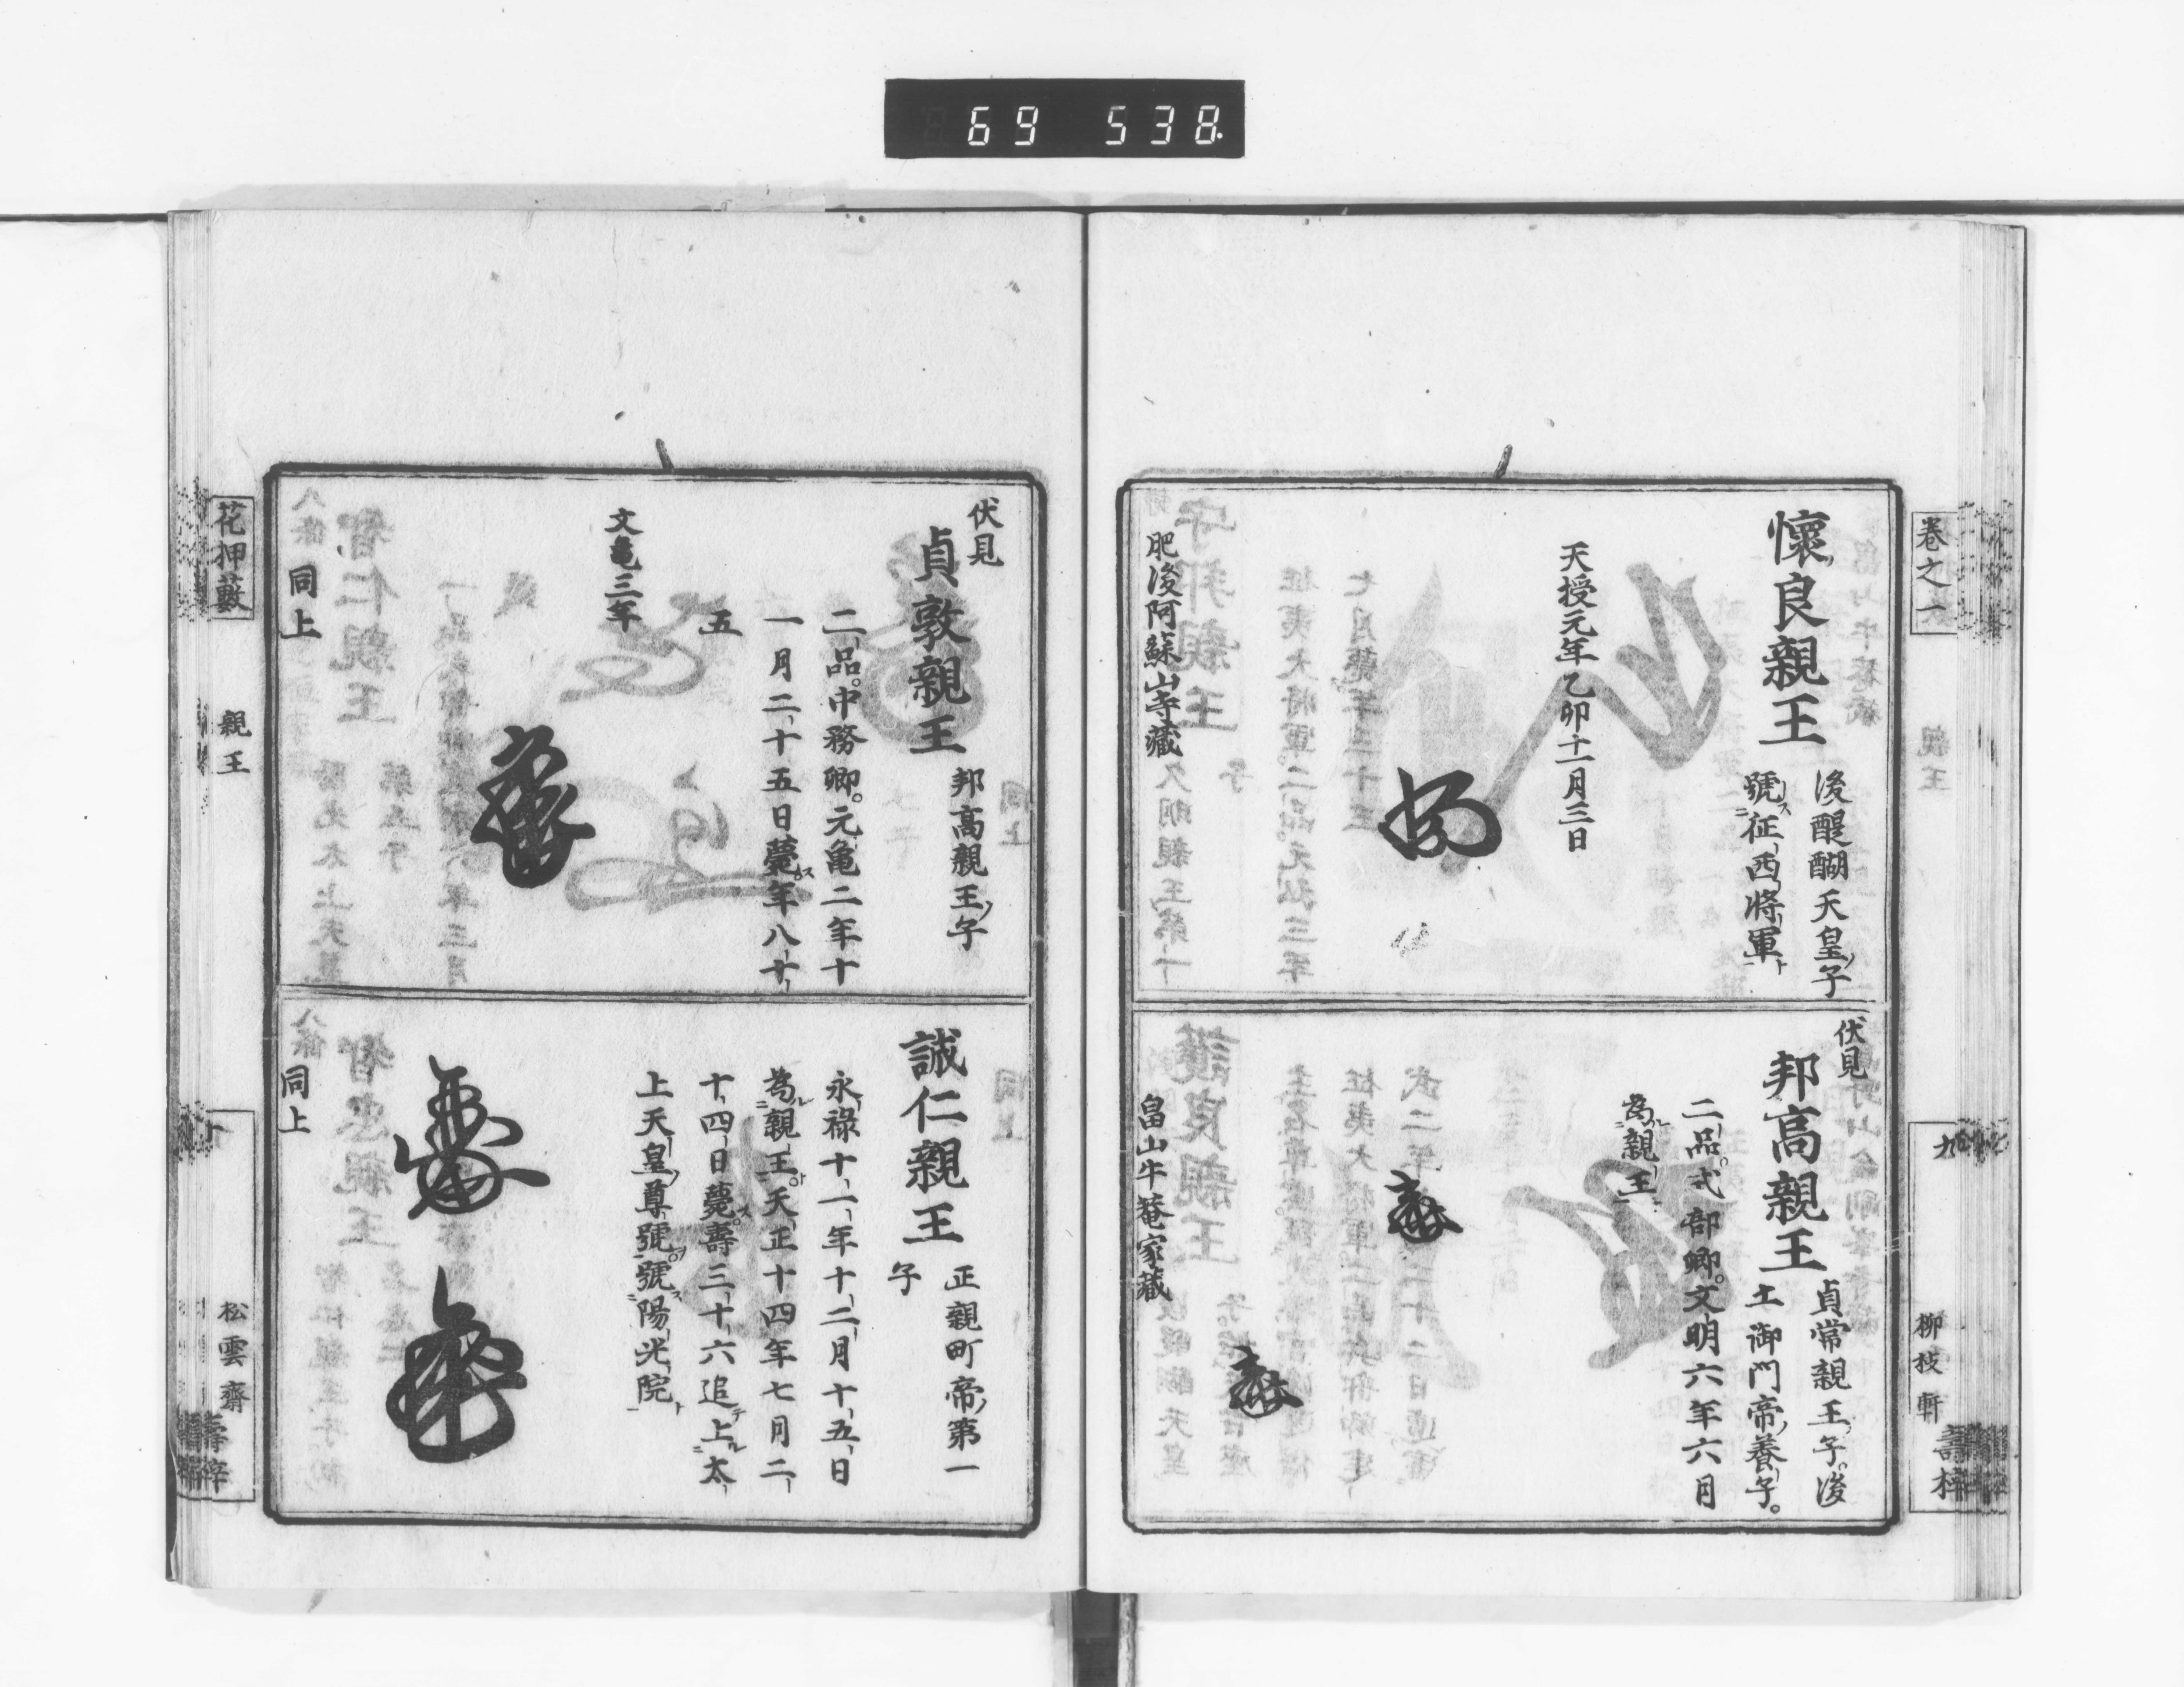 69 538
卷之一
九
柳枝軒
懷良親王
後醍醐天皇ノ子
號ス征西將軍ト
天授元年乙卯十一月三日
肥後阿蘇山寺藏
伏見
邦高親王
貞常親王ノ子。後
土御門帝ノ養子。
二品。式部卿。文明六年六月
為ル親王ニ
畠山牛菴家藏
伏見
貞敦親王
邦高親王ノ子
二品。中務卿。元亀二年十
一月二十五日薨ス。年八十
五
文亀三年
同上
誠仁親王
正親町帝ノ第一
子
永祿十一年十二月十五日
為ル親王ト。天正十四年七月二
十四日薨ス。壽三十六追テ上ル太
上天皇ノ尊號ヲ。號ス陽光院ト
同上
花押藪
親王
松雲齋